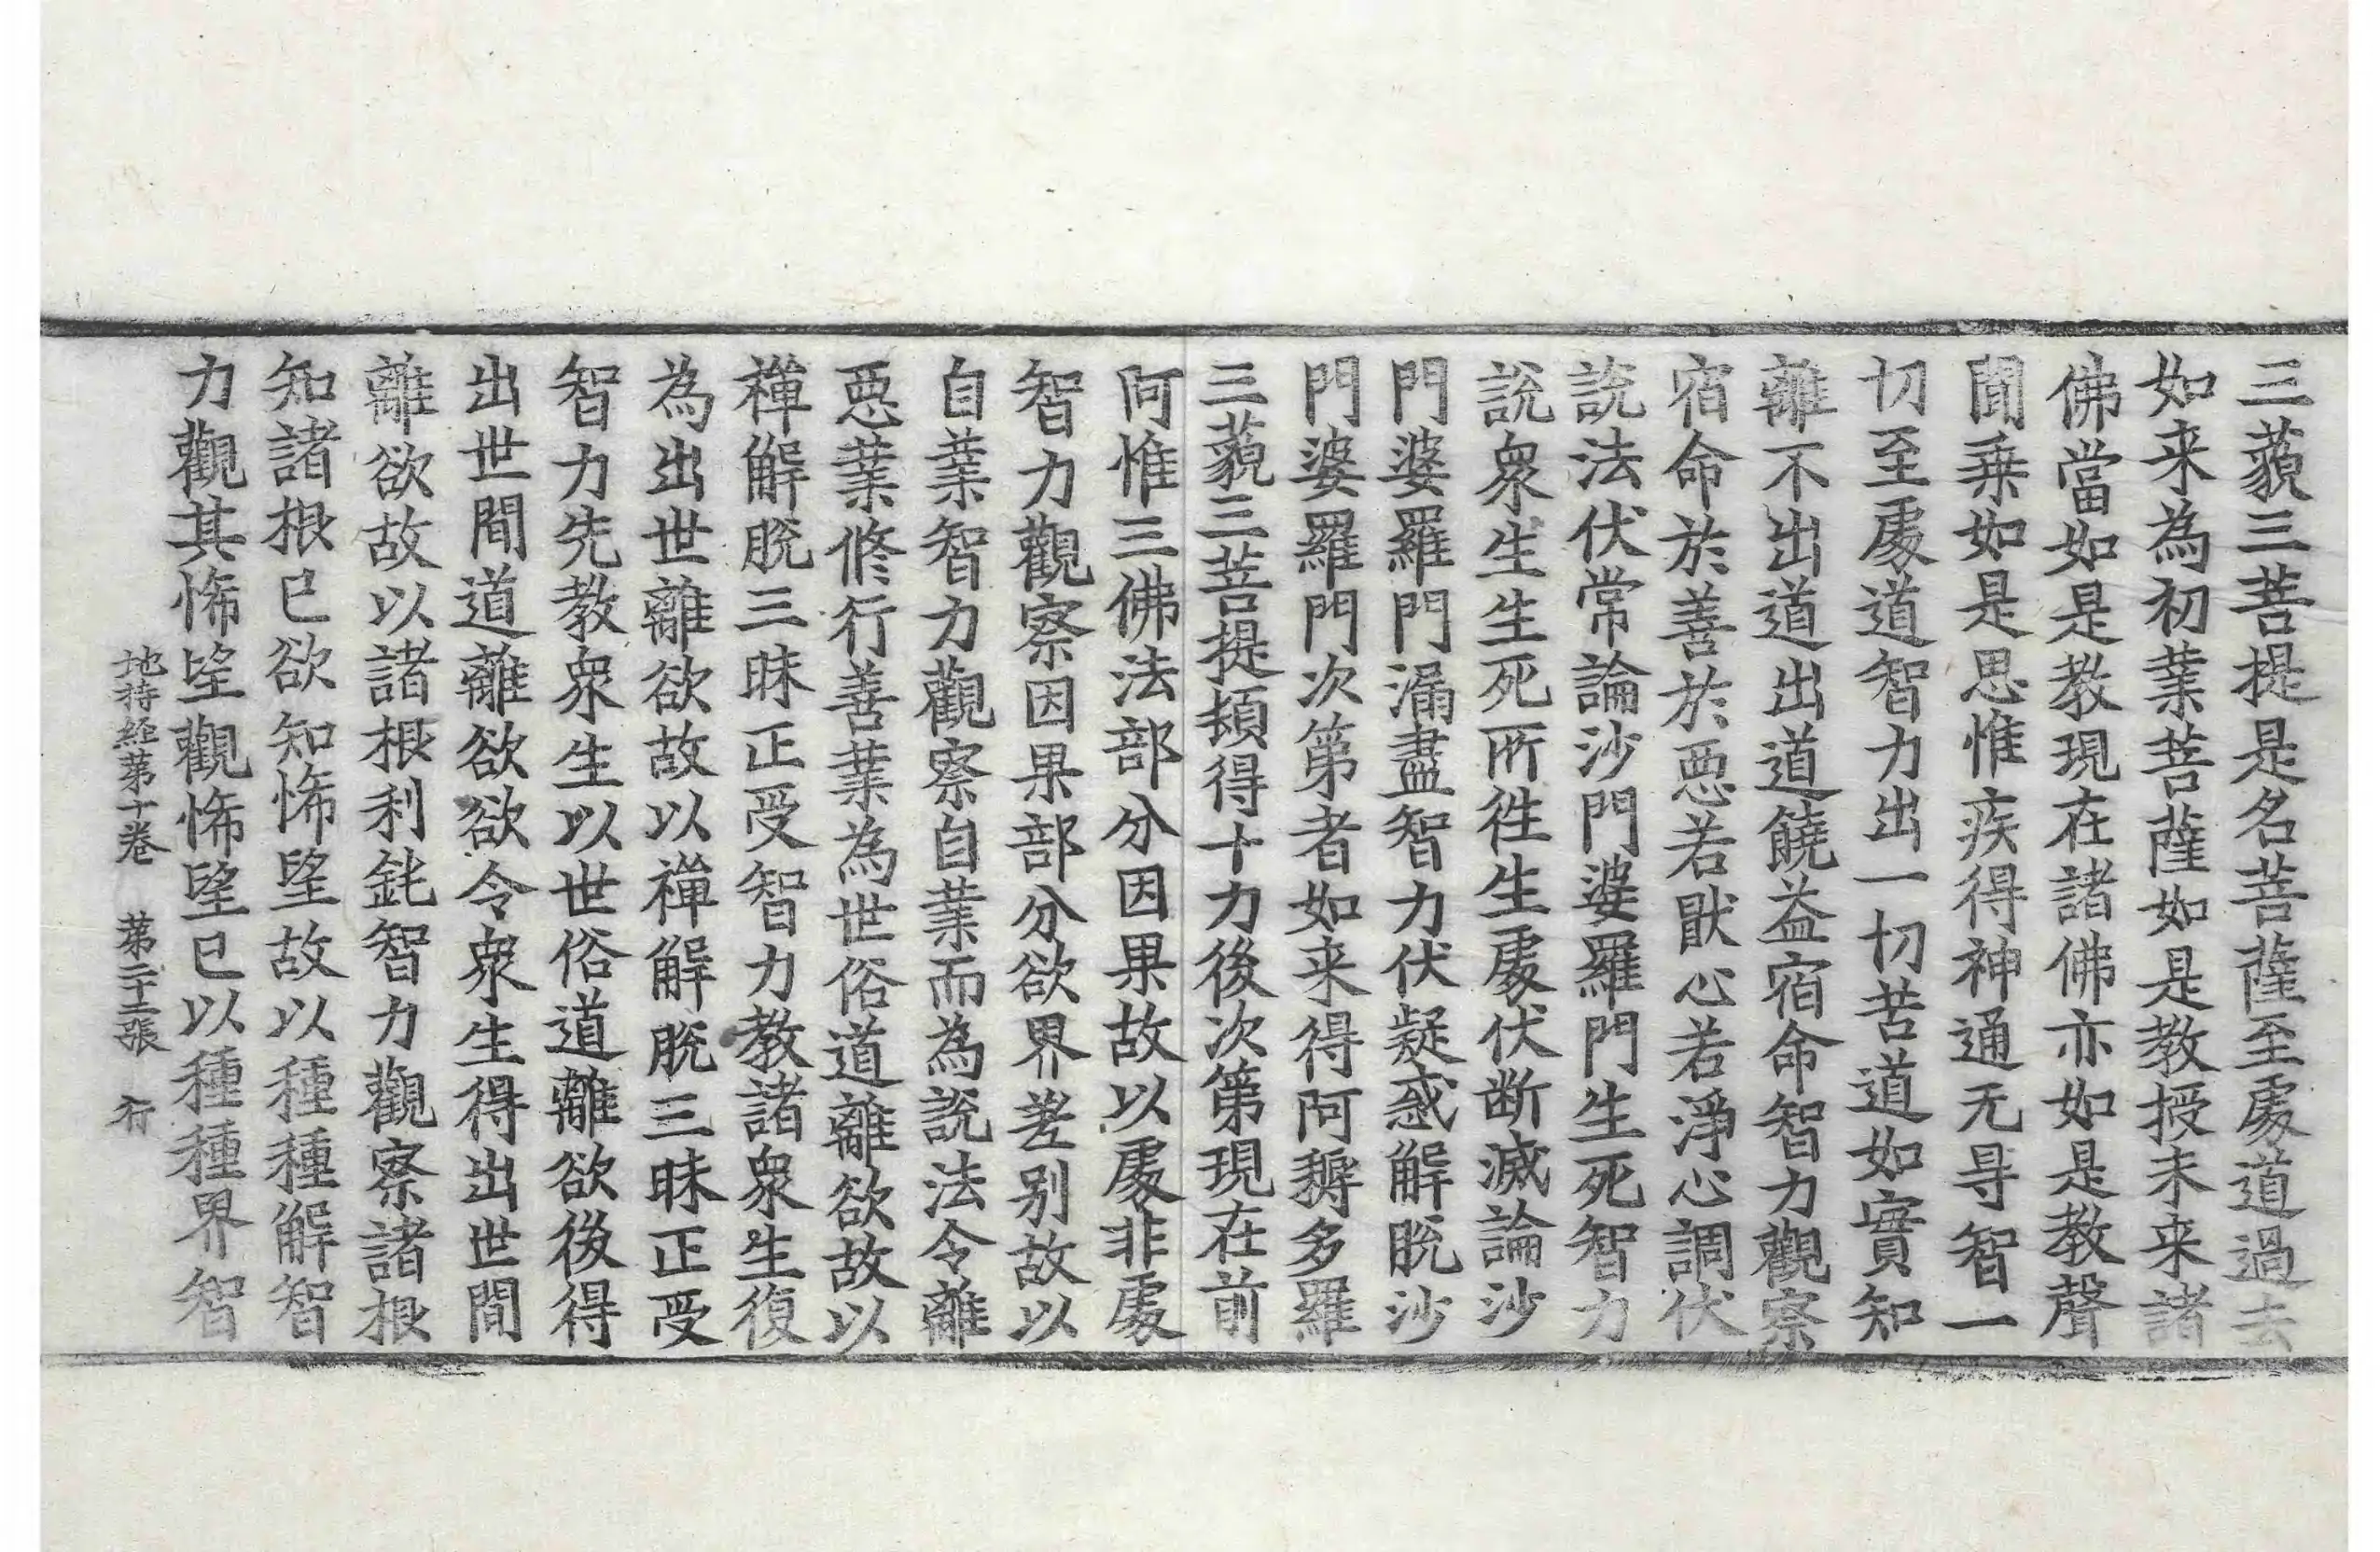 三藐三菩提是名菩薩至處道過去
如来為初業菩薩如是教授未来諸
佛當如是教現在諸佛亦如是教聲
聞乗如是思惟疾得神通无㝵智一
切至處道智力出一切苦道如實知
離不出道出道饒益宿命智力觀察
宿命於善於惡若猒心若淨心調伏
說法伏常論沙門婆羅門生死智力
說衆生生死所徃生處伏断滅論沙
門婆羅門漏盡智力伏疑惑解脫沙
門婆羅門次第者如来得阿耨多羅
三藐三菩提頓得十力後次第現在前
阿惟三佛法部分因果故以處非處
智力觀察因果部分欲界差别故以
自業智力觀察自業而為說法令離
惡業修行善業為世俗道離欲故以
禪解脫三昧正受智力教諸衆生復
為出世離欲故以禪解脫三昧正受
智力先教衆生以世俗道離欲後得
出世間道離欲欲令衆生得出世間
離欲故以諸根利鈍智力觀察諸根
知諸根已欲知悕望故以種種解智
力觀其悕望觀悕望已以種種界智
地持經第十卷 第二十二張 行